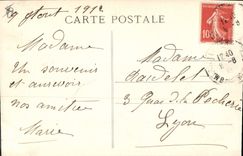 9 Août 1912
CARTE POSTALE
Madame
Un souvenir
et aurevoir
nos amitiés
Marie
Madame
3 Quai de la Pêcherie
Lyon
10